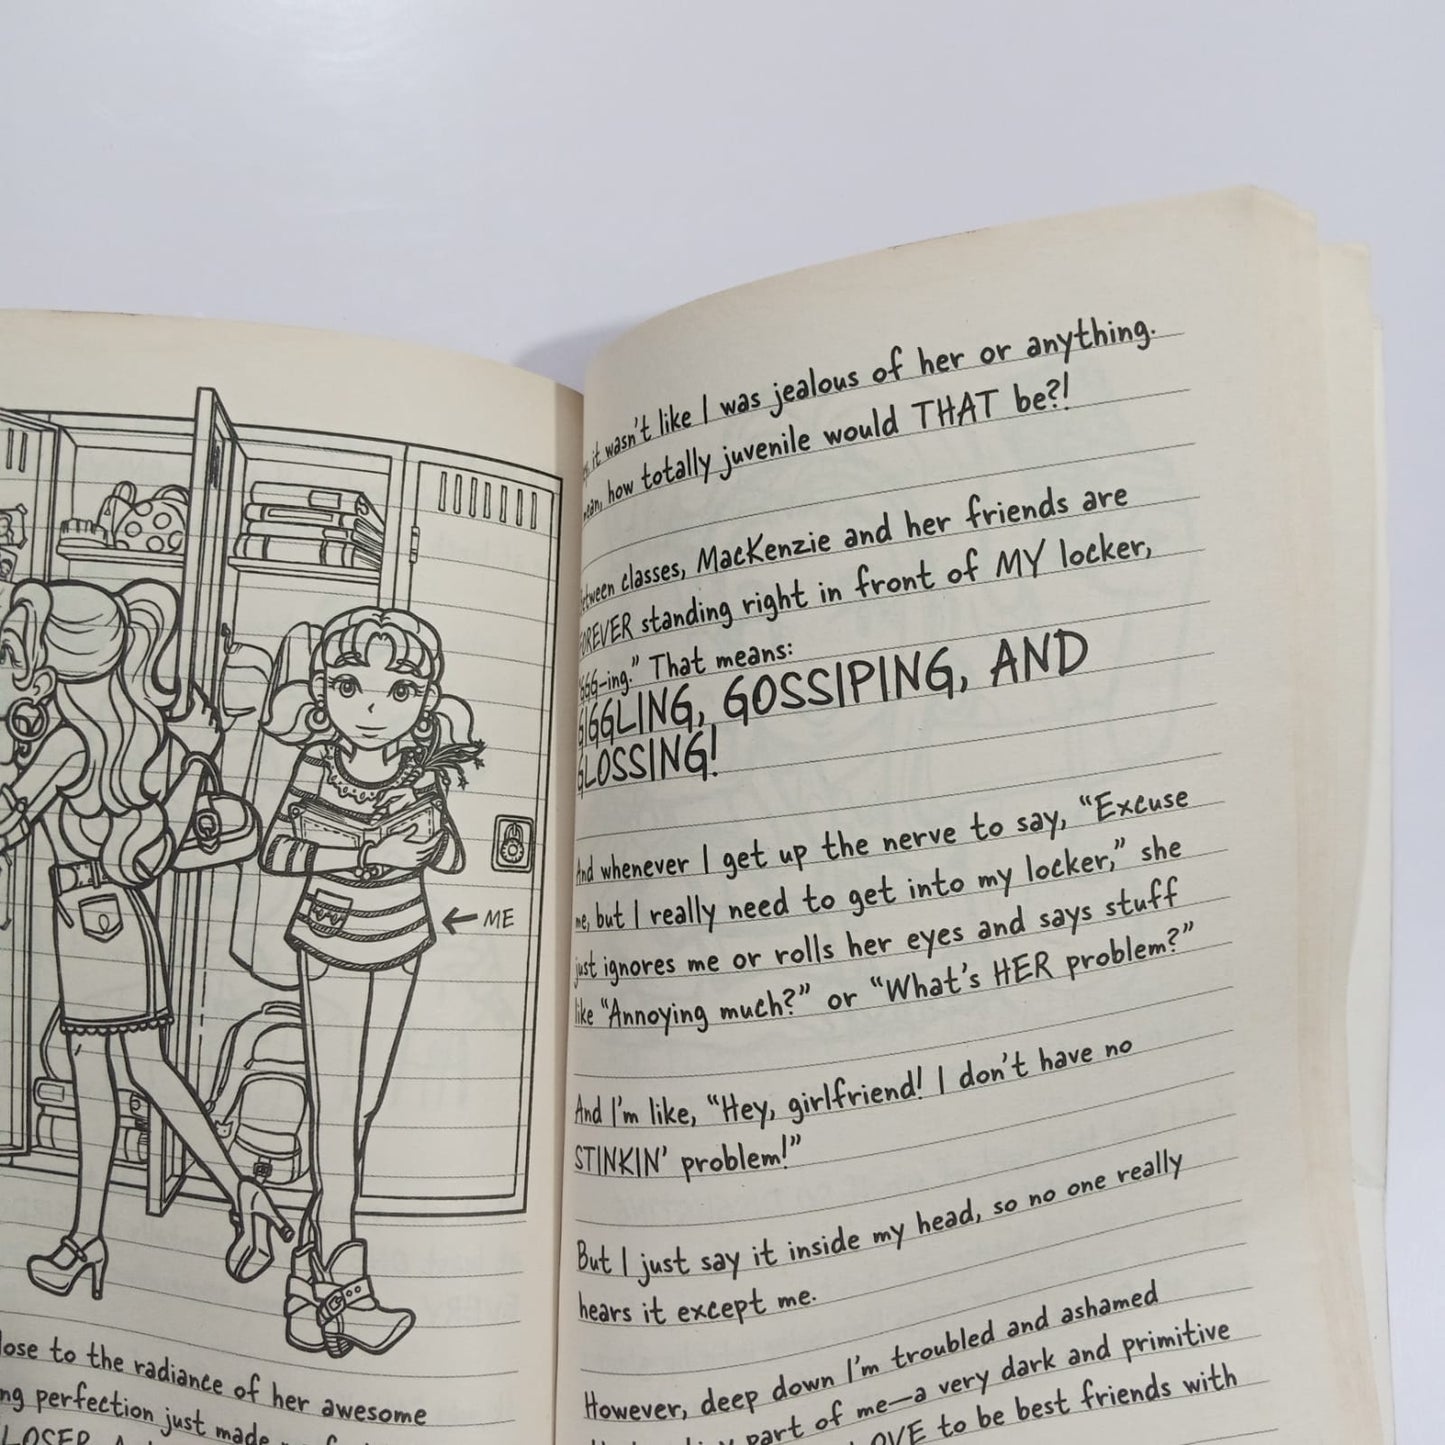 ← ME
lose to the radiance of her awesome
perfection just made
LOSER
it wasn't like I was jealous of her or anything.
how totally juvenile would THAT be?!
between classes, MacKenzie and her friends are
FOREVER standing right in front of MY locker,
"GGG-ing." That means:
GIGGLING, GOSSIPING, AND
GLOSSING!
And whenever I get up the nerve to say, "Excuse
me, but I really need to get into my locker," she
just ignores me or rolls her eyes and says stuff
like "Annoying much?" or "What's HER problem?"
And I'm like, "Hey, girlfriend! I don't have no
STINKIN' problem!"
But I just say it inside my head, so no one really
hears it except me.
However, deep down I'm troubled and ashamed
part of me—a very dark and primitive
LOVE to be best friends with